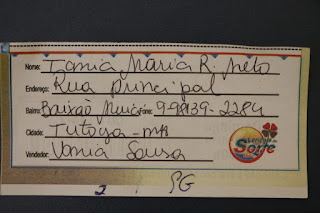 Nome: Tania Maria R. Melo
Endereço: Rua principal
Bairro: Baixão Fone: 99839-2284
Cidade: Tutoya-MA
Vendedor: Vania Sousa
Sorte
2 PG